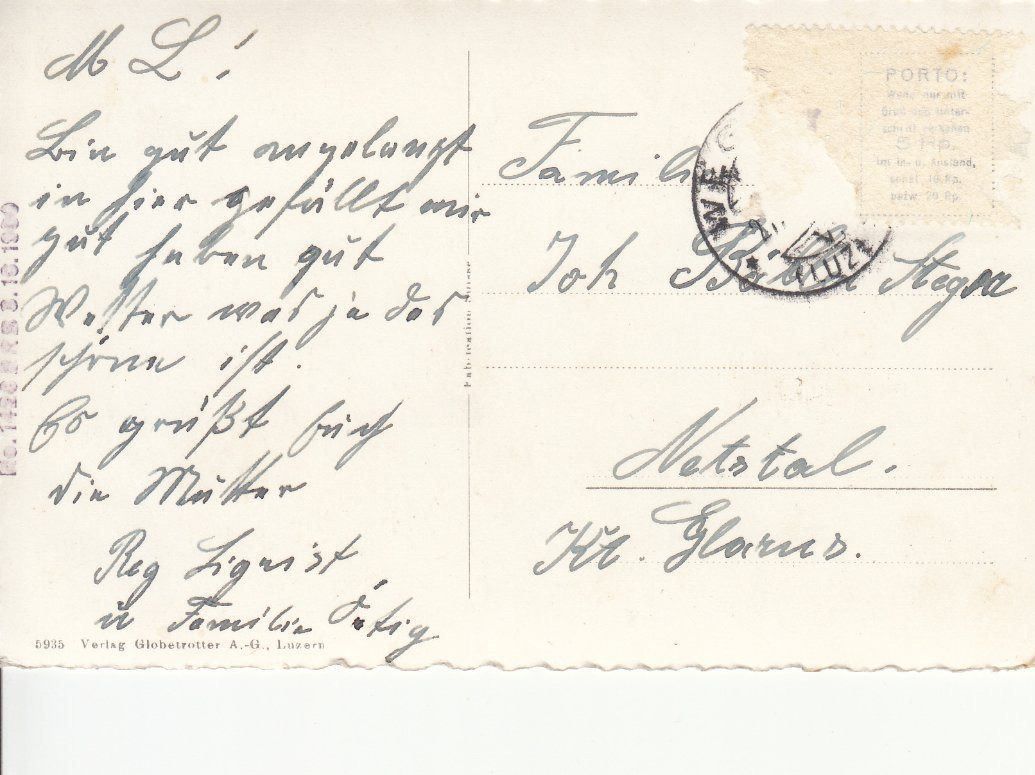 M L!
Bin gut angelangt
in hier gefällt mir
gut haben gut
Wetter was ja das
schöne ist.
Es grüßt Euch
die Mutter
Reg
u Familie
5935 Verlag Globetrotter A.-G., Luzern
Fabrication Suisse
PORTO:
Wenn nur mit
Gruss und Unter-
schrift versehen
5 Rp.
im In- u. Ausland,
sonst 10 Rp.
bezw. 20 Rp.
Familie
Joh Steger
Netstal.
Kt. Glarus.